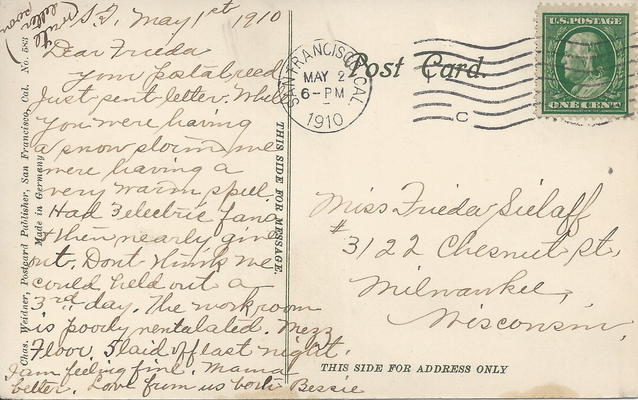 (write
letter
soon)
S.F. May 1st 1910
Dear Frieda
Your postal recd
Just sent letter. While
you were having
a snow storm we
were having a
very warm spell.
Had 3 electric fans
& then nearly give
out. Dont think we
could held out a
3rd day. The workroom
is poorly ventalated. Mezz
Floor. 5 laid off last night.
I am feeling fine. Mama
better. Love from us both Bessie
Chas. Weidner, Postcard Publisher, San Francisco, Cal. No. 583
Made in Germany
THIS SIDE FOR MESSAGE
Post Card.
SAN FRANCISCO, CAL.
MAY 2
6-PM
1910
C
U.S. POSTAGE
ONE CENT
Miss Frieda Sielaff
#3122 Chesnut St,
Milwaukee,
Wisconsin.
THIS SIDE FOR ADDRESS ONLY